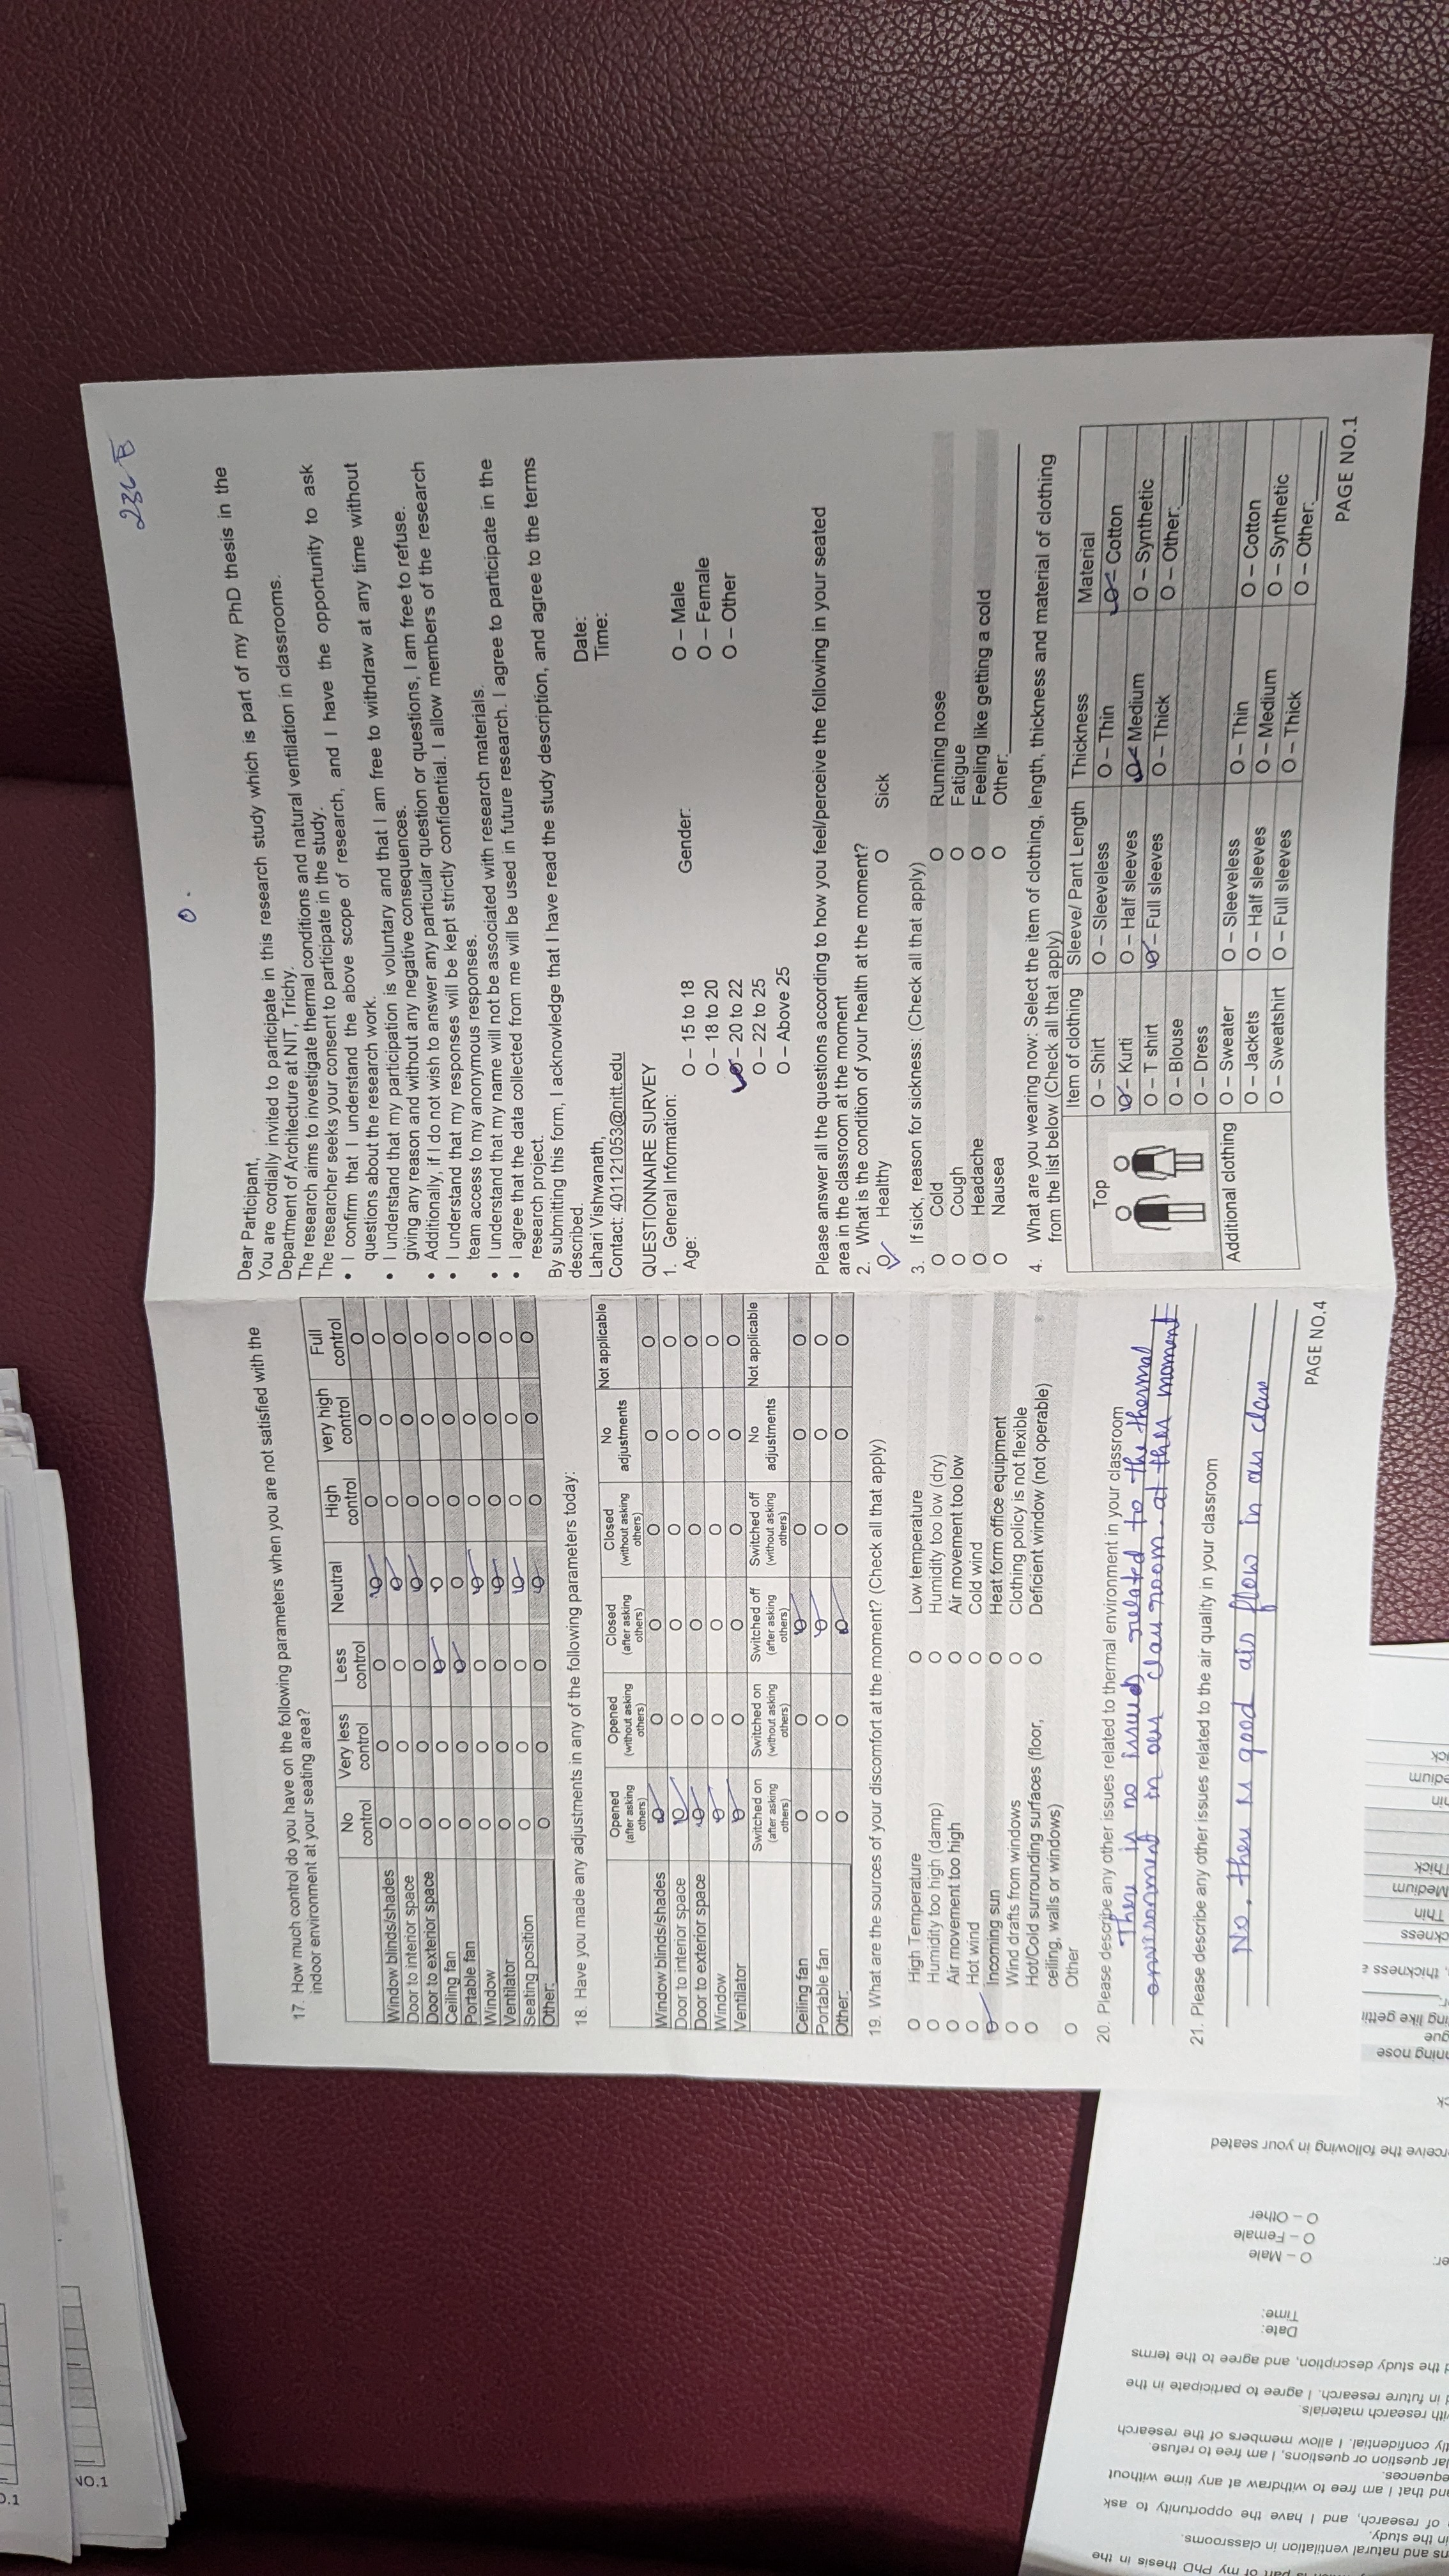 17. How much control do you have on the following parameters when you are not satisfied with the
indoor environment at your seating area?
No control Very less control Less control Neutral High control very high control Full control
Window blinds/shades O O O O O O O
Door to interior space O O O O O O O
Door to exterior space O O O O O O O
Ceiling fan O O O O O O O
Portable fan O O O O O O O
Window O O O O O O O
Ventilator O O O O O O O
Seating position O O O O O O O
Other: O O O O O O O
18. Have you made any adjustments in any of the following parameters today:
Opened (after asking others) Opened (without asking others) Closed (after asking others) Closed (without asking others) No adjustments Not applicable
Window blinds/shades O O O O O O
Door to interior space O O O O O O
Door to exterior space O O O O O O
Window O O O O O O
Ventilator O O O O O O
Switched on (after asking others) Switched on (without asking others) Switched off (after asking others) Switched off (without asking others) No adjustments Not applicable
Ceiling fan O O O O O O
Portable fan O O O O O O
Other: O O O O O O
19. What are the sources of your discomfort at the moment? (Check all that apply)
O High Temperature O Low temperature
O Humidity too high (damp) O Humidity too low (dry)
O Air movement too high O Air movement too low
O Hot wind O Cold wind
O Incoming sun O Heat form office equipment
O Wind drafts from windows O Clothing policy is not flexible
O Hot/Cold surrounding surfaces (floor, O Deficient window (not operable)
ceiling, walls or windows)
O Other
20. Please describe any other issues related to thermal environment in your classroom
There is no issues related to the thermal
environment in our class room. at this moment
21. Please describe any other issues related to the air quality in your classroom
No. there is good air flow in our class
PAGE NO.4
Dear Participant,
You are cordially invited to participate in this research study which is part of my PhD thesis in the
Department of Architecture at NIT, Trichy.
The research aims to investigate thermal conditions and natural ventilation in classrooms.
The researcher seeks your consent to participate in the study.
• I confirm that I understand the above scope of research, and I have the opportunity to ask
questions about the research work.
• I understand that my participation is voluntary and that I am free to withdraw at any time without
giving any reason and without any negative consequences.
• Additionally, if I do not wish to answer any particular question or questions, I am free to refuse.
• I understand that my responses will be kept strictly confidential. I allow members of the research
team access to my anonymous responses.
• I understand that my name will not be associated with research materials.
• I agree that the data collected from me will be used in future research. I agree to participate in the
research project.
By submitting this form, I acknowledge that I have read the study description, and agree to the terms
described.
Lahari Vishwanath,
Contact: 401121053@nitt.edu
Date:
Time:
QUESTIONNAIRE SURVEY
1. General Information:
Age: O – 15 to 18 Gender: O – Male
O – 18 to 20 O – Female
O – 20 to 22 O – Other
O – 22 to 25
O – Above 25
Please answer all the questions according to how you feel/perceive the following in your seated
area in the classroom at the moment
2. What is the condition of your health at the moment?
O Healthy O Sick
3. If sick, reason for sickness: (Check all that apply)
O Cold O Running nose
O Cough O Fatigue
O Headache O Feeling like getting a cold
O Nausea O Other:
4. What are you wearing now: Select the item of clothing, length, thickness and material of clothing
from the list below (Check all that apply)
Item of clothing Sleeve/ Pant Length Thickness Material
Top O – Shirt O – Sleeveless O – Thin O – Cotton
O – Kurti O – Half sleeves O – Medium O – Synthetic
O – T shirt O – Full sleeves O – Thick O – Other:
O – Blouse
O – Dress
Additional clothing O – Sweater O – Sleeveless O – Thin O – Cotton
O – Jackets O – Half sleeves O – Medium O – Synthetic
O – Sweatshirt O – Full sleeves O – Thick O – Other:
PAGE NO.1